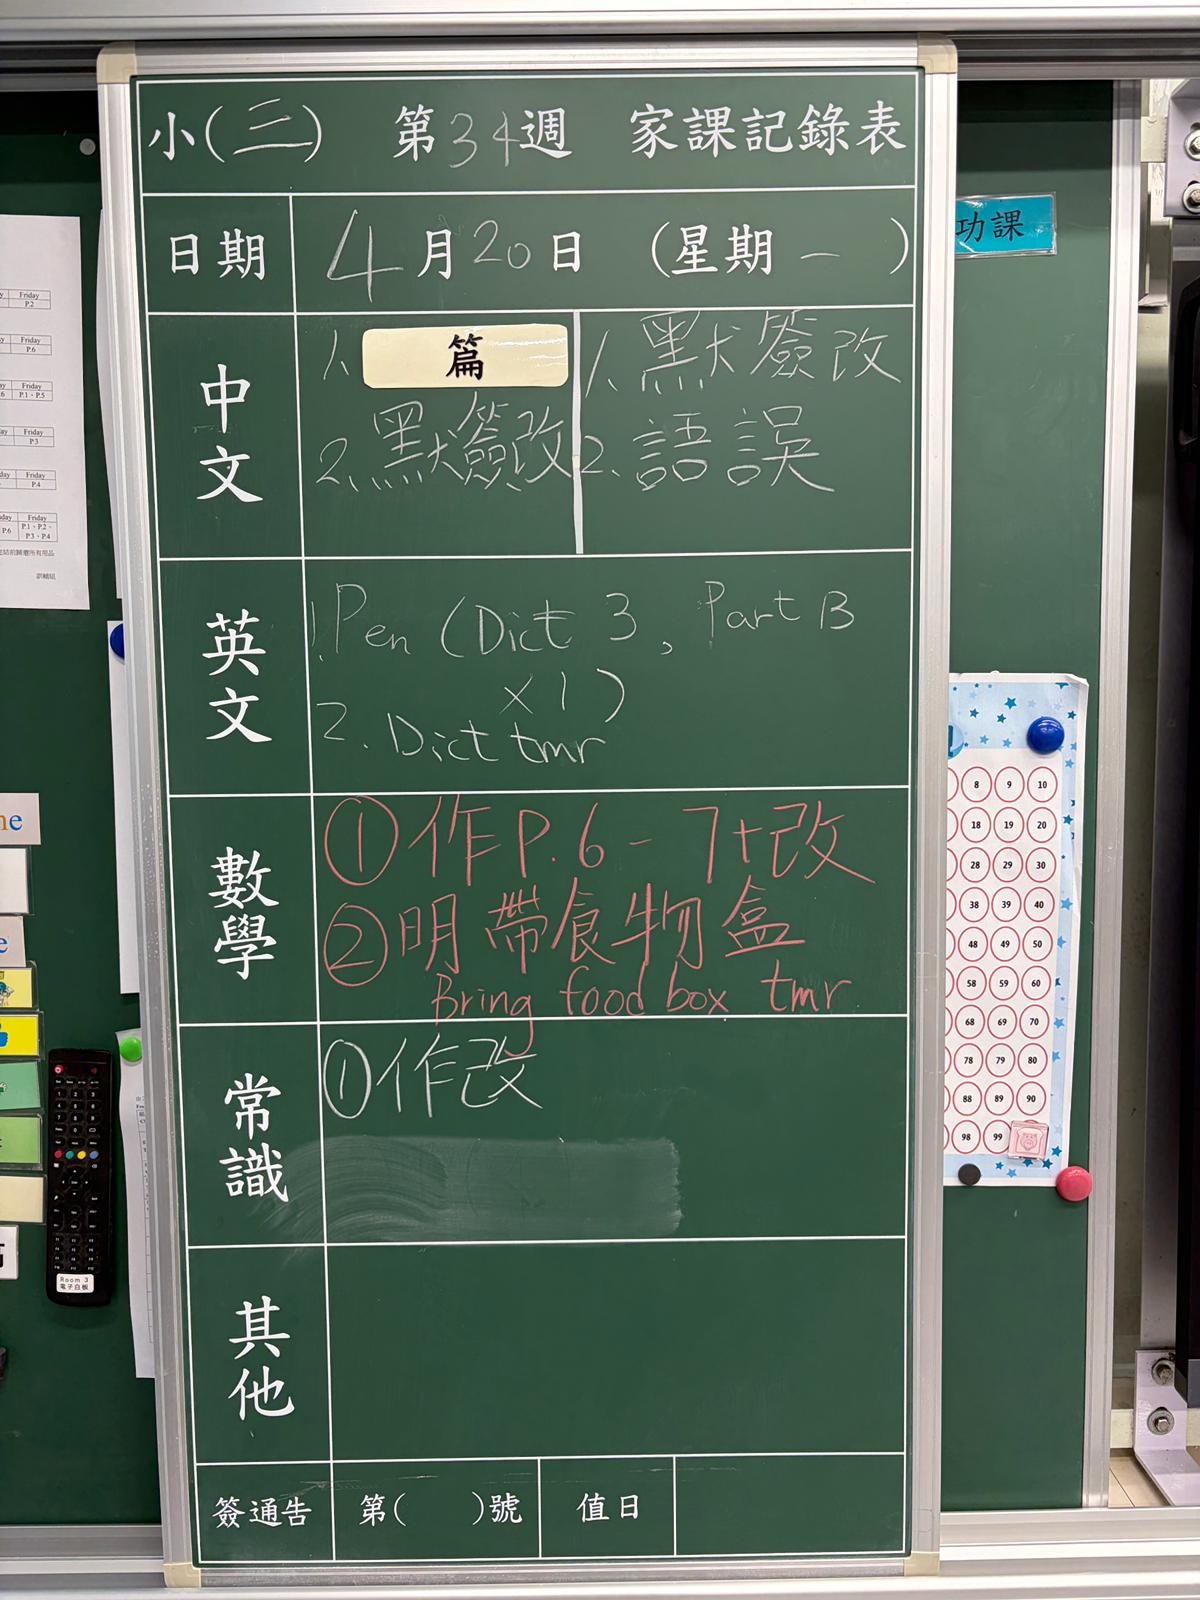 小(三) 第34週 家課記錄表
日期 4月20日 (星期一)
中文
1. 篇
2. 默簽改
1. 默簽改
2. 語誤
英文
1. Pen (Dict 3, Part B
x1)
2. Dict tmr
數學
①作P.6-7+改
②明帶食物盒
Bring food box tmr
常識
①作改
其他
簽通告 第( )號 值日
功課
Friday
P.2
Friday
P.6
Friday
P.1、P.5
Friday
P.3
Friday
P.4
Friday
P.1、P.2、
P.3、P.4
訓輔組
8 9 10
18 19 20
28 29 30
38 39 40
48 49 50
58 59 60
68 69 70
78 79 80
88 89 90
98 99
Room 3
電子白板